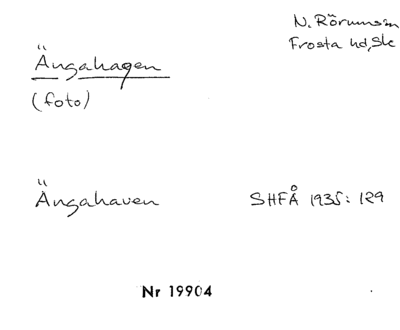 N. Rörumssn
Frosta hd, Sk
Ängahagen
(foto)
Ängahaven SHFÅ 1935: 129
Nr 19904